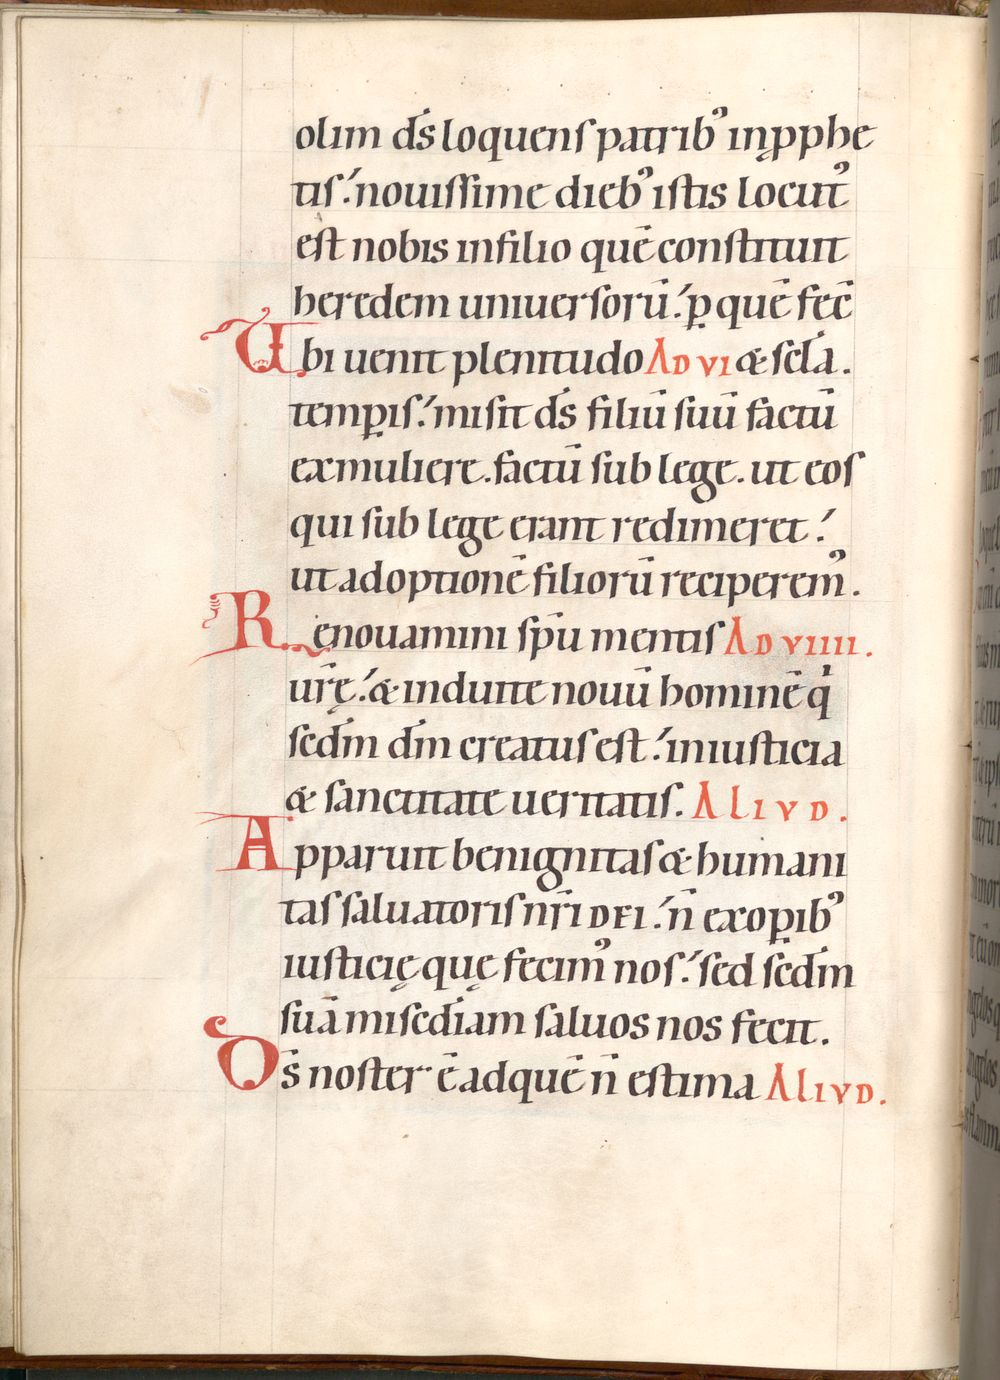 olim ds̄ loquens patrib᾿ in ꝓphe
tis. nouissime dieb᾿ istis locut᾿
est nobis infilio quē constituit
heredem uniuersorū. ꝑ quē fec̄
Ubi uenit plenitudo AD VI & scl̄a.
temꝑis. misit ds̄ filiū suū factū
exmuliere. factū sub lege. ut eos
qui sub lege erant redimeret.
ut adoptionē filiorū reciperem᾿.
Renouamini sp̄u mentis AD VIIII.
ur̄ę. & induite nouū hominē qͥ
scd̄m dm̄ creatus est. iniusticia
& sanctitate ueritatis. ALIVD.
Apparuit benignitas & humani
tas saluatoris nr̄i DEI. n̄ exoꝑib᾿
iusticię quę fecim᾿ nos. sed scd̄m
suā misc̄diam saluos nos fecit.
Ds̄ noster ē adquē n̄ estima ALIVD.